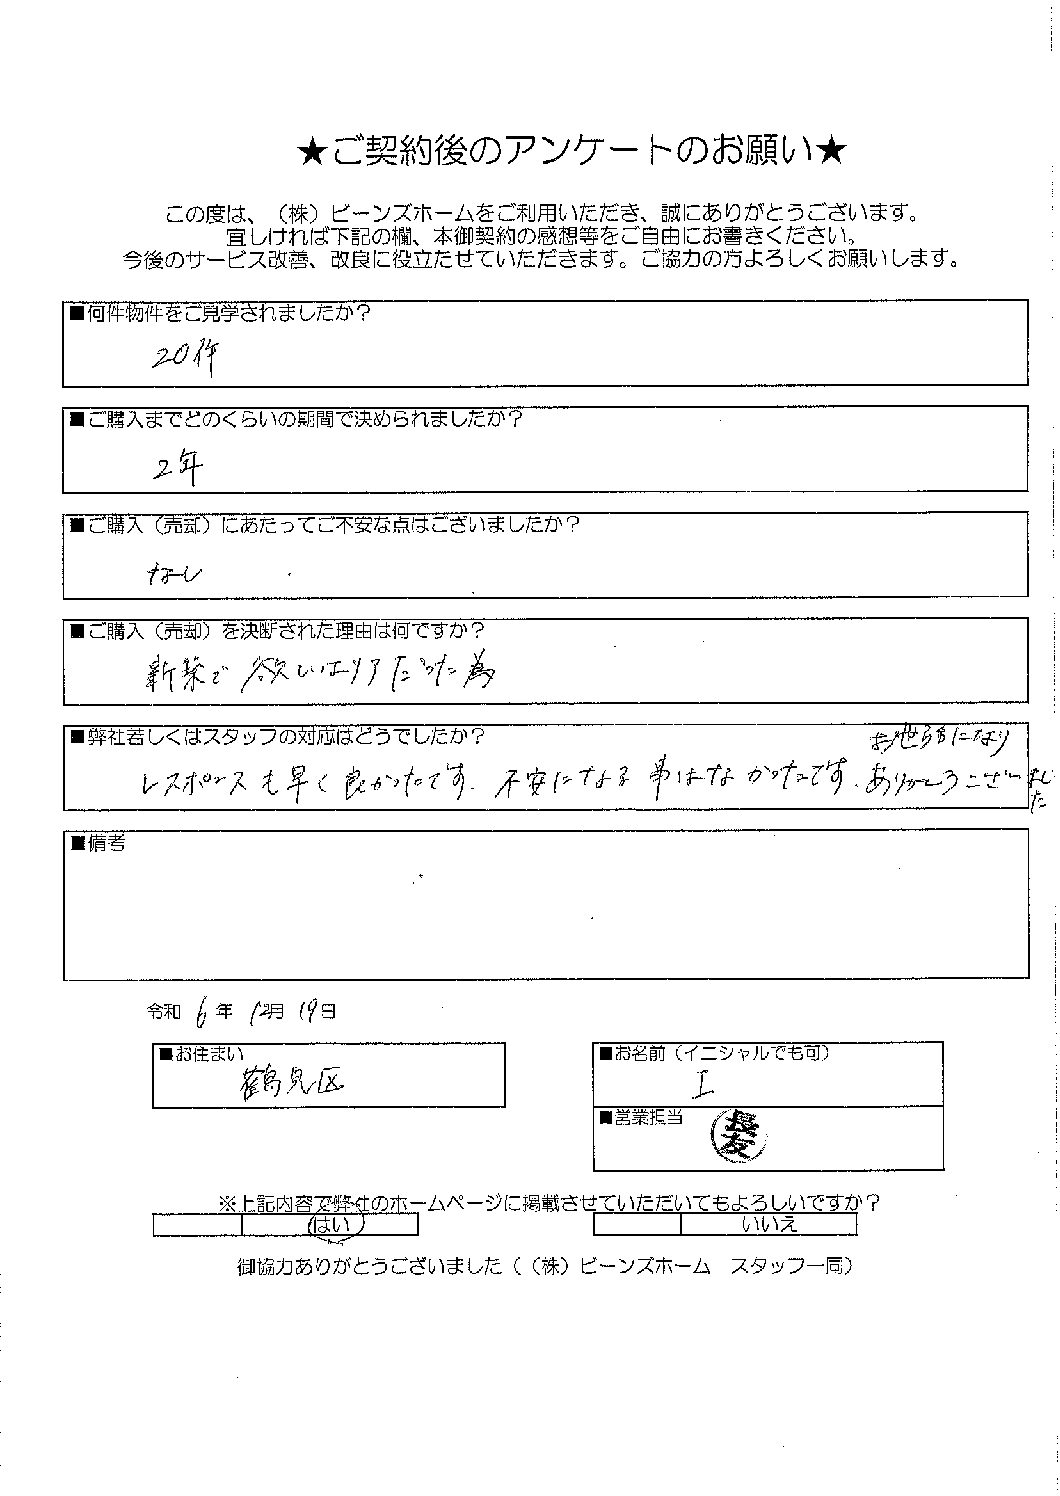 ★ご契約後のアンケートのお願い★
この度は、（株）ビーンズホームをご利用いただき、誠にありがとうございます。
宜しければ下記の欄、本御契約の感想等をご自由にお書きください。
今後のサービス改善、改良に役立たせていただきます。ご協力の方よろしくお願いします。
■何件物件をご見学されましたか？
20件
■ご購入までどのくらいの期間で決められましたか？
2年
■ご購入（売却）にあたってご不安な点はございましたか？
なし
■ご購入（売却）を決断された理由は何ですか？
新築で欲しいエリアだった為
■弊社若しくはスタッフの対応はどうでしたか？
レスポンスも早く良かったです。不安になる事はなかったです。
お世話になり
ありがとうございました
■備考
令和 6年 12月 19日
■お住まい
鶴見区
■お名前（イニシャルでも可）
I
■営業担当
長友
※上記内容で弊社のホームページに掲載させていただいてもよろしいですか？
はい いいえ
御協力ありがとうございました（（株）ビーンズホーム　スタッフ一同）